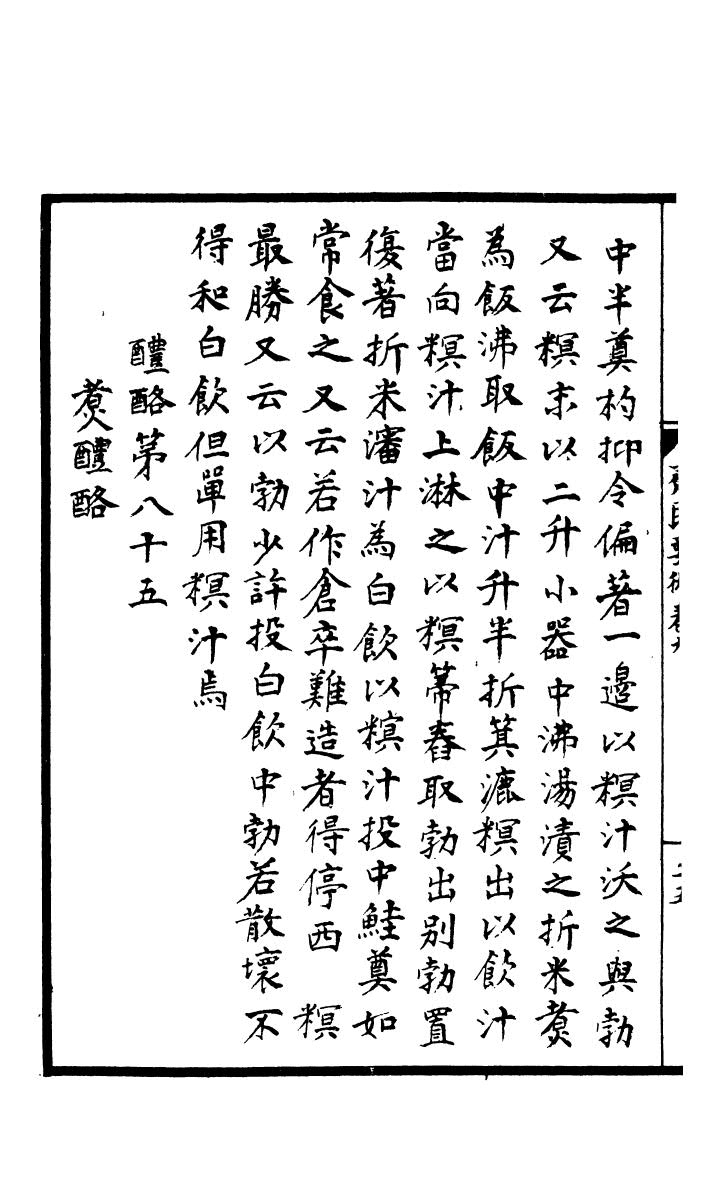 中半奠杓抑令偏著一邊以糗汁沃之與勃
又云糗末以二升小器中沸湯漬之折米煑
為飯沸取飯中汁升半折箕漉糗出以飲汁
當向糗汁上淋之以糗箒舂取勃出别勃置
復著折米瀋汁為白飲以糗汁投中鮭奠如
常食之又云若作倉卒難造者得停西 糗
最勝又云以勃少許投白飲中勃若散壞不
得和白飲但單用糗汁焉
醴酪第八十五
煑醴酪
齊民要術卷九